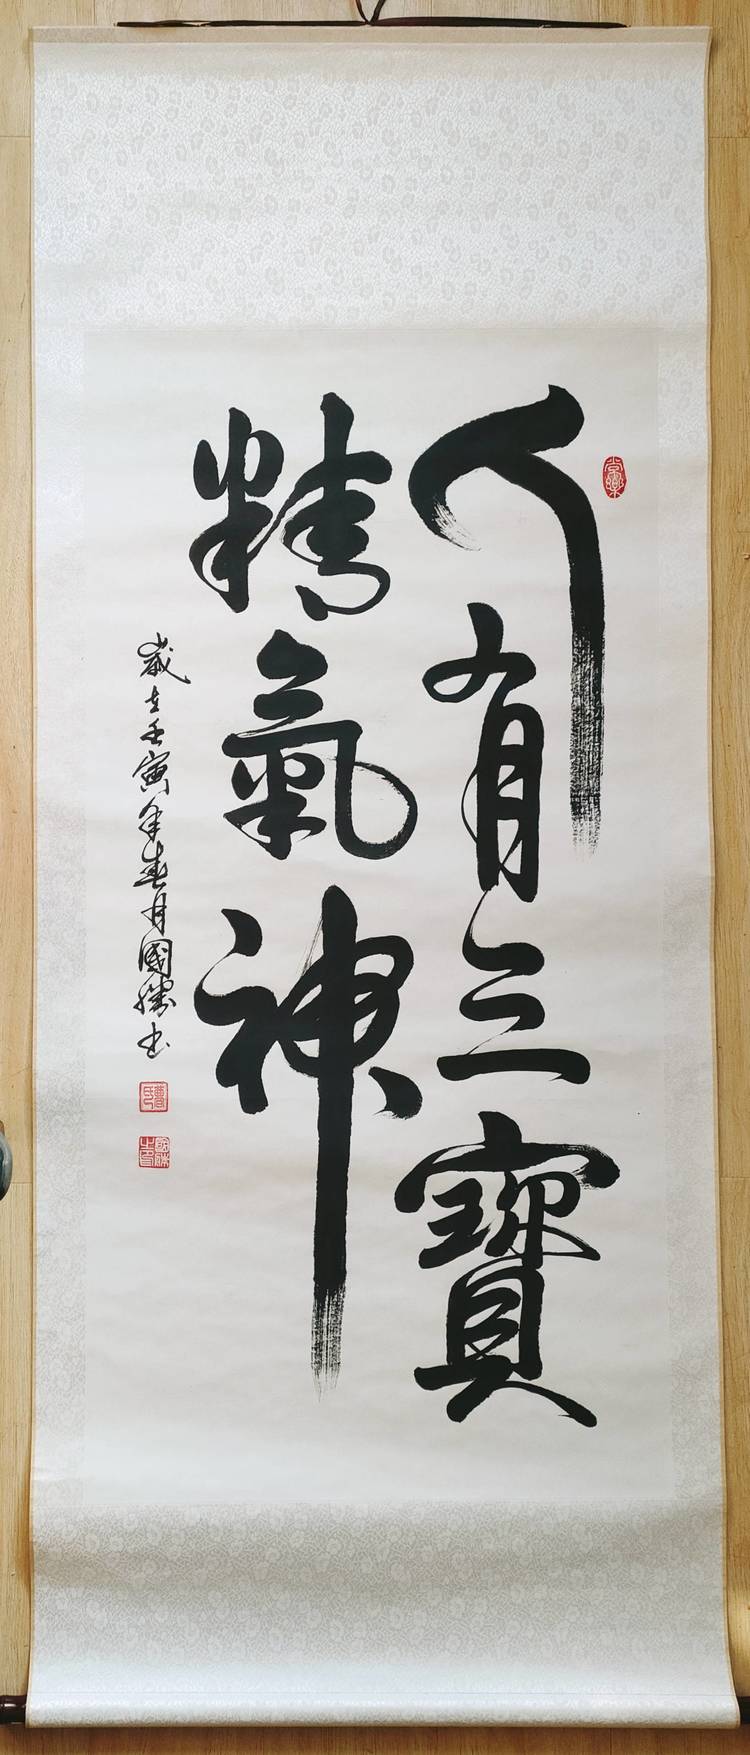 人有三寶
精氣神
歲在壬寅年春月國勝書